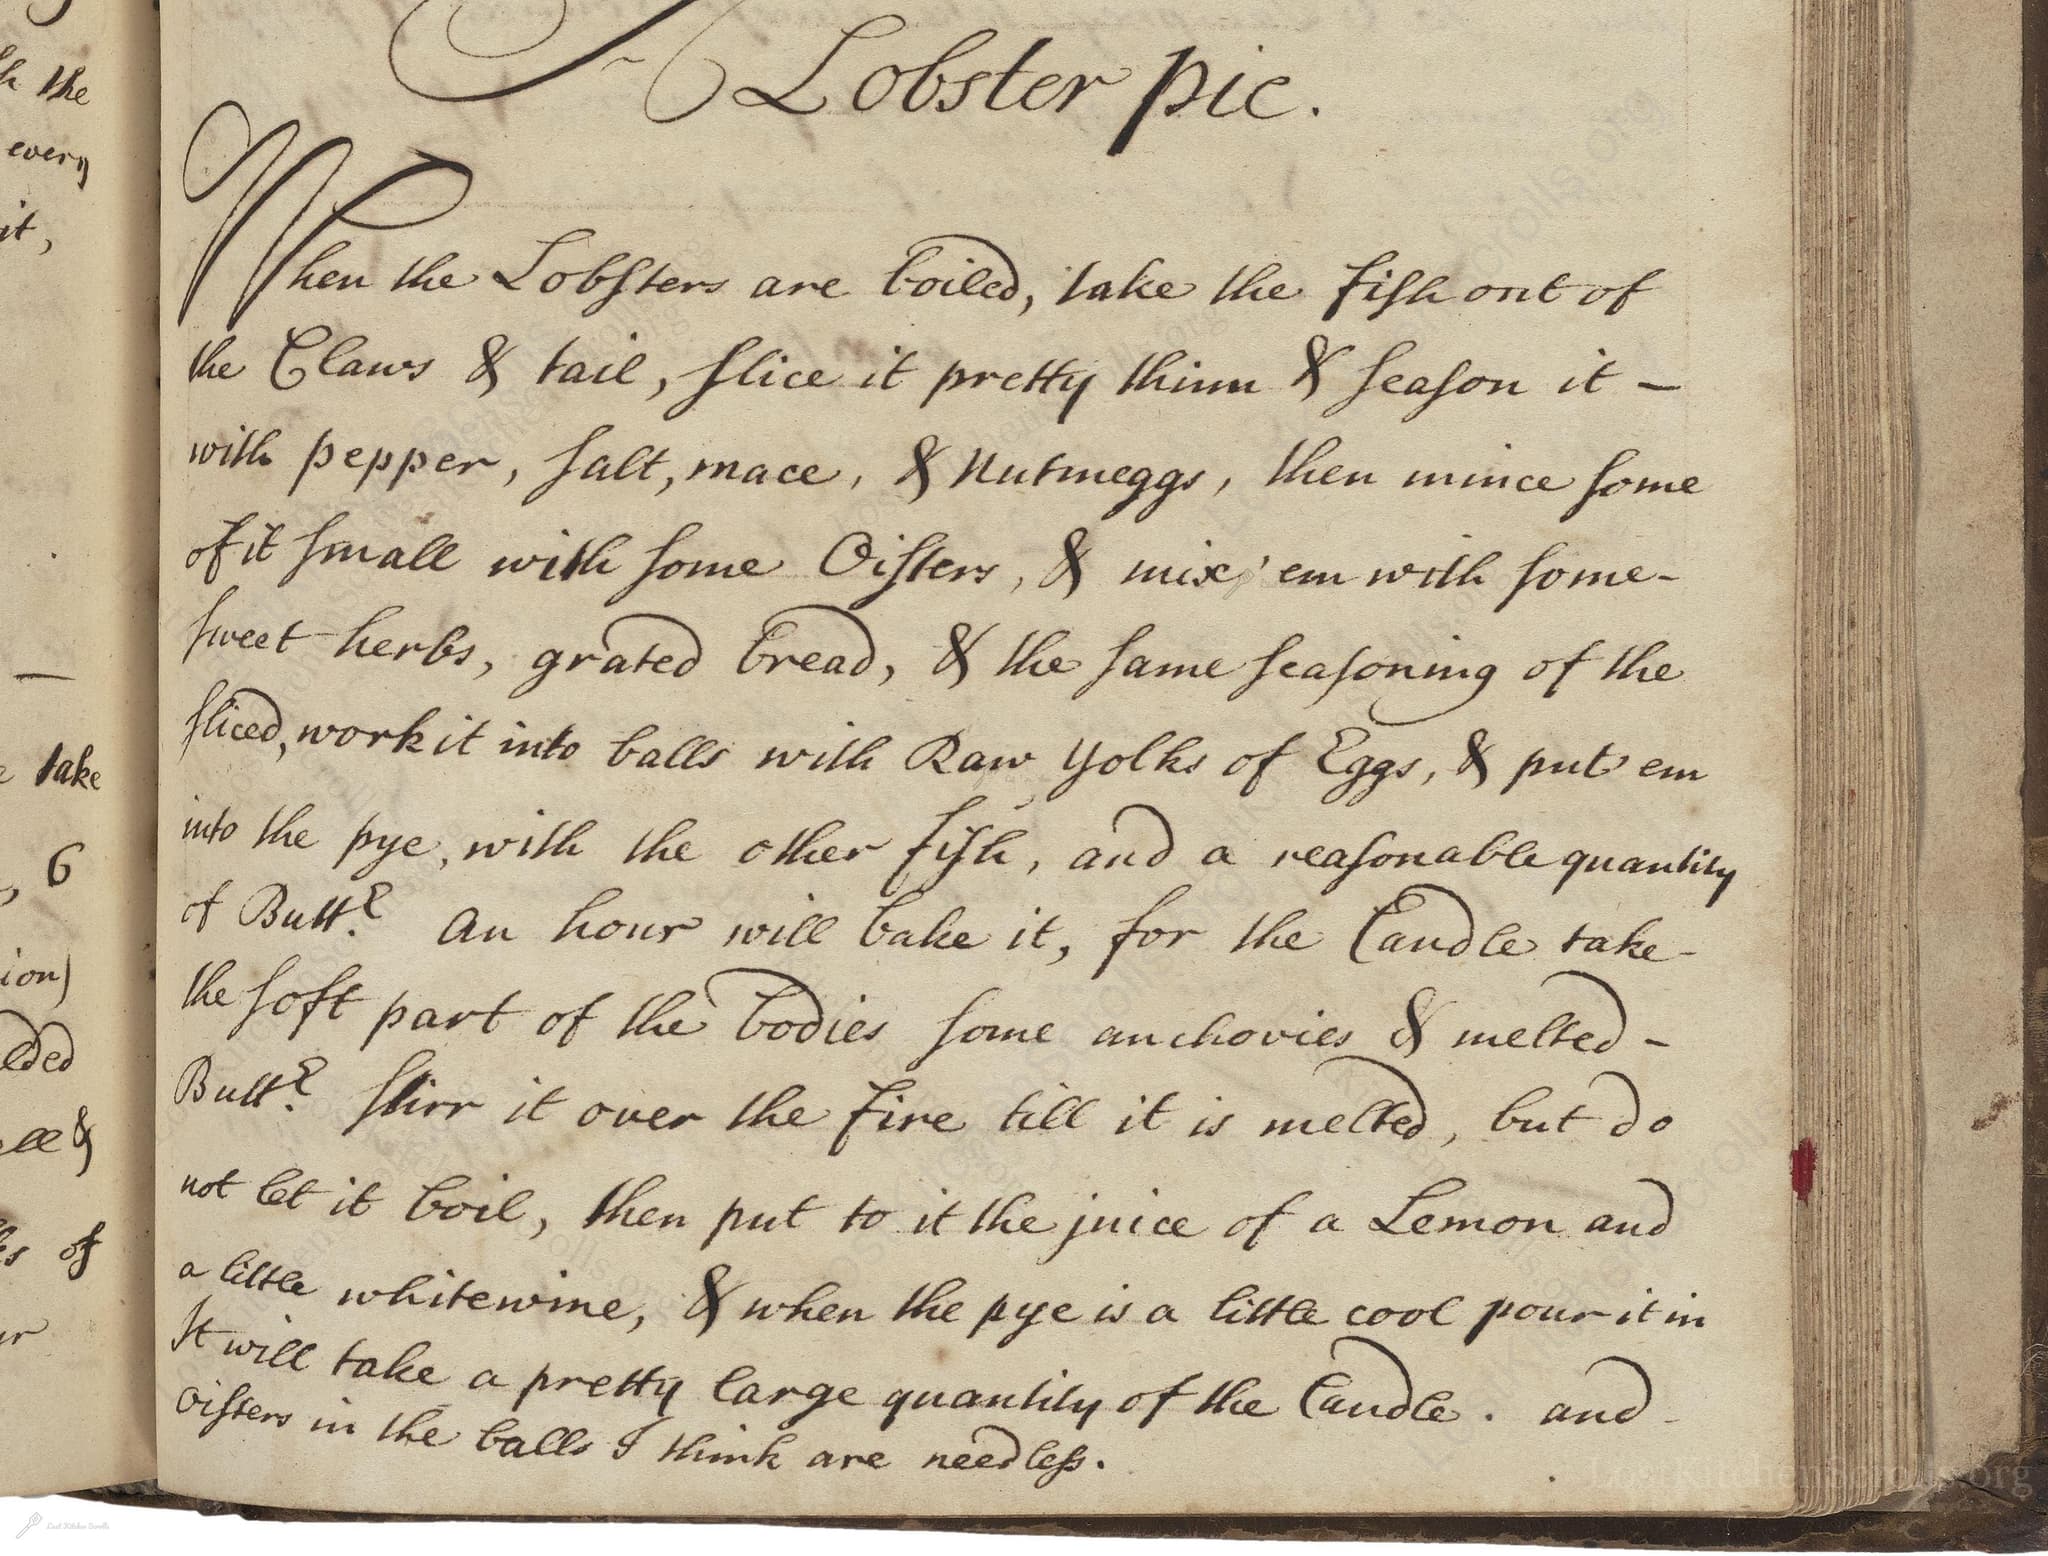 h the
every
it,
take
6
ion)
eded
ll &
of
A Lobster pie.
When the Lobſters are boiled, take the fiſh out of
the Claws & tail, ſlice it pretty thinn & ſeaſon it –
with pepper, ſalt, mace, & Nutmeggs, then mince ſome
of it ſmall with ſome Oiſters, & mix 'em with ſome-
ſweet herbs, grated bread, & the ſame ſeaſoning of the
ſliced, work it into balls with Raw yolks of Eggs, & put 'em
into the pye, with the other fiſh, and a reaſonable quantity
of Buttr. An hour will bake it, for the Caudle take-
the ſoft part of the bodies ſome anchovies & melted –
Buttr. ſtirr it over the fire till it is melted, but do
not let it boil, then put to it the juice of a Lemon and
a little whitewine, & when the pye is a little cool pour it in
It will take a pretty large quantity of the Caudle. and
oiſters in the balls I think are needleſs.
LostKitchenScrolls.org
Lost Kitchen Scrolls